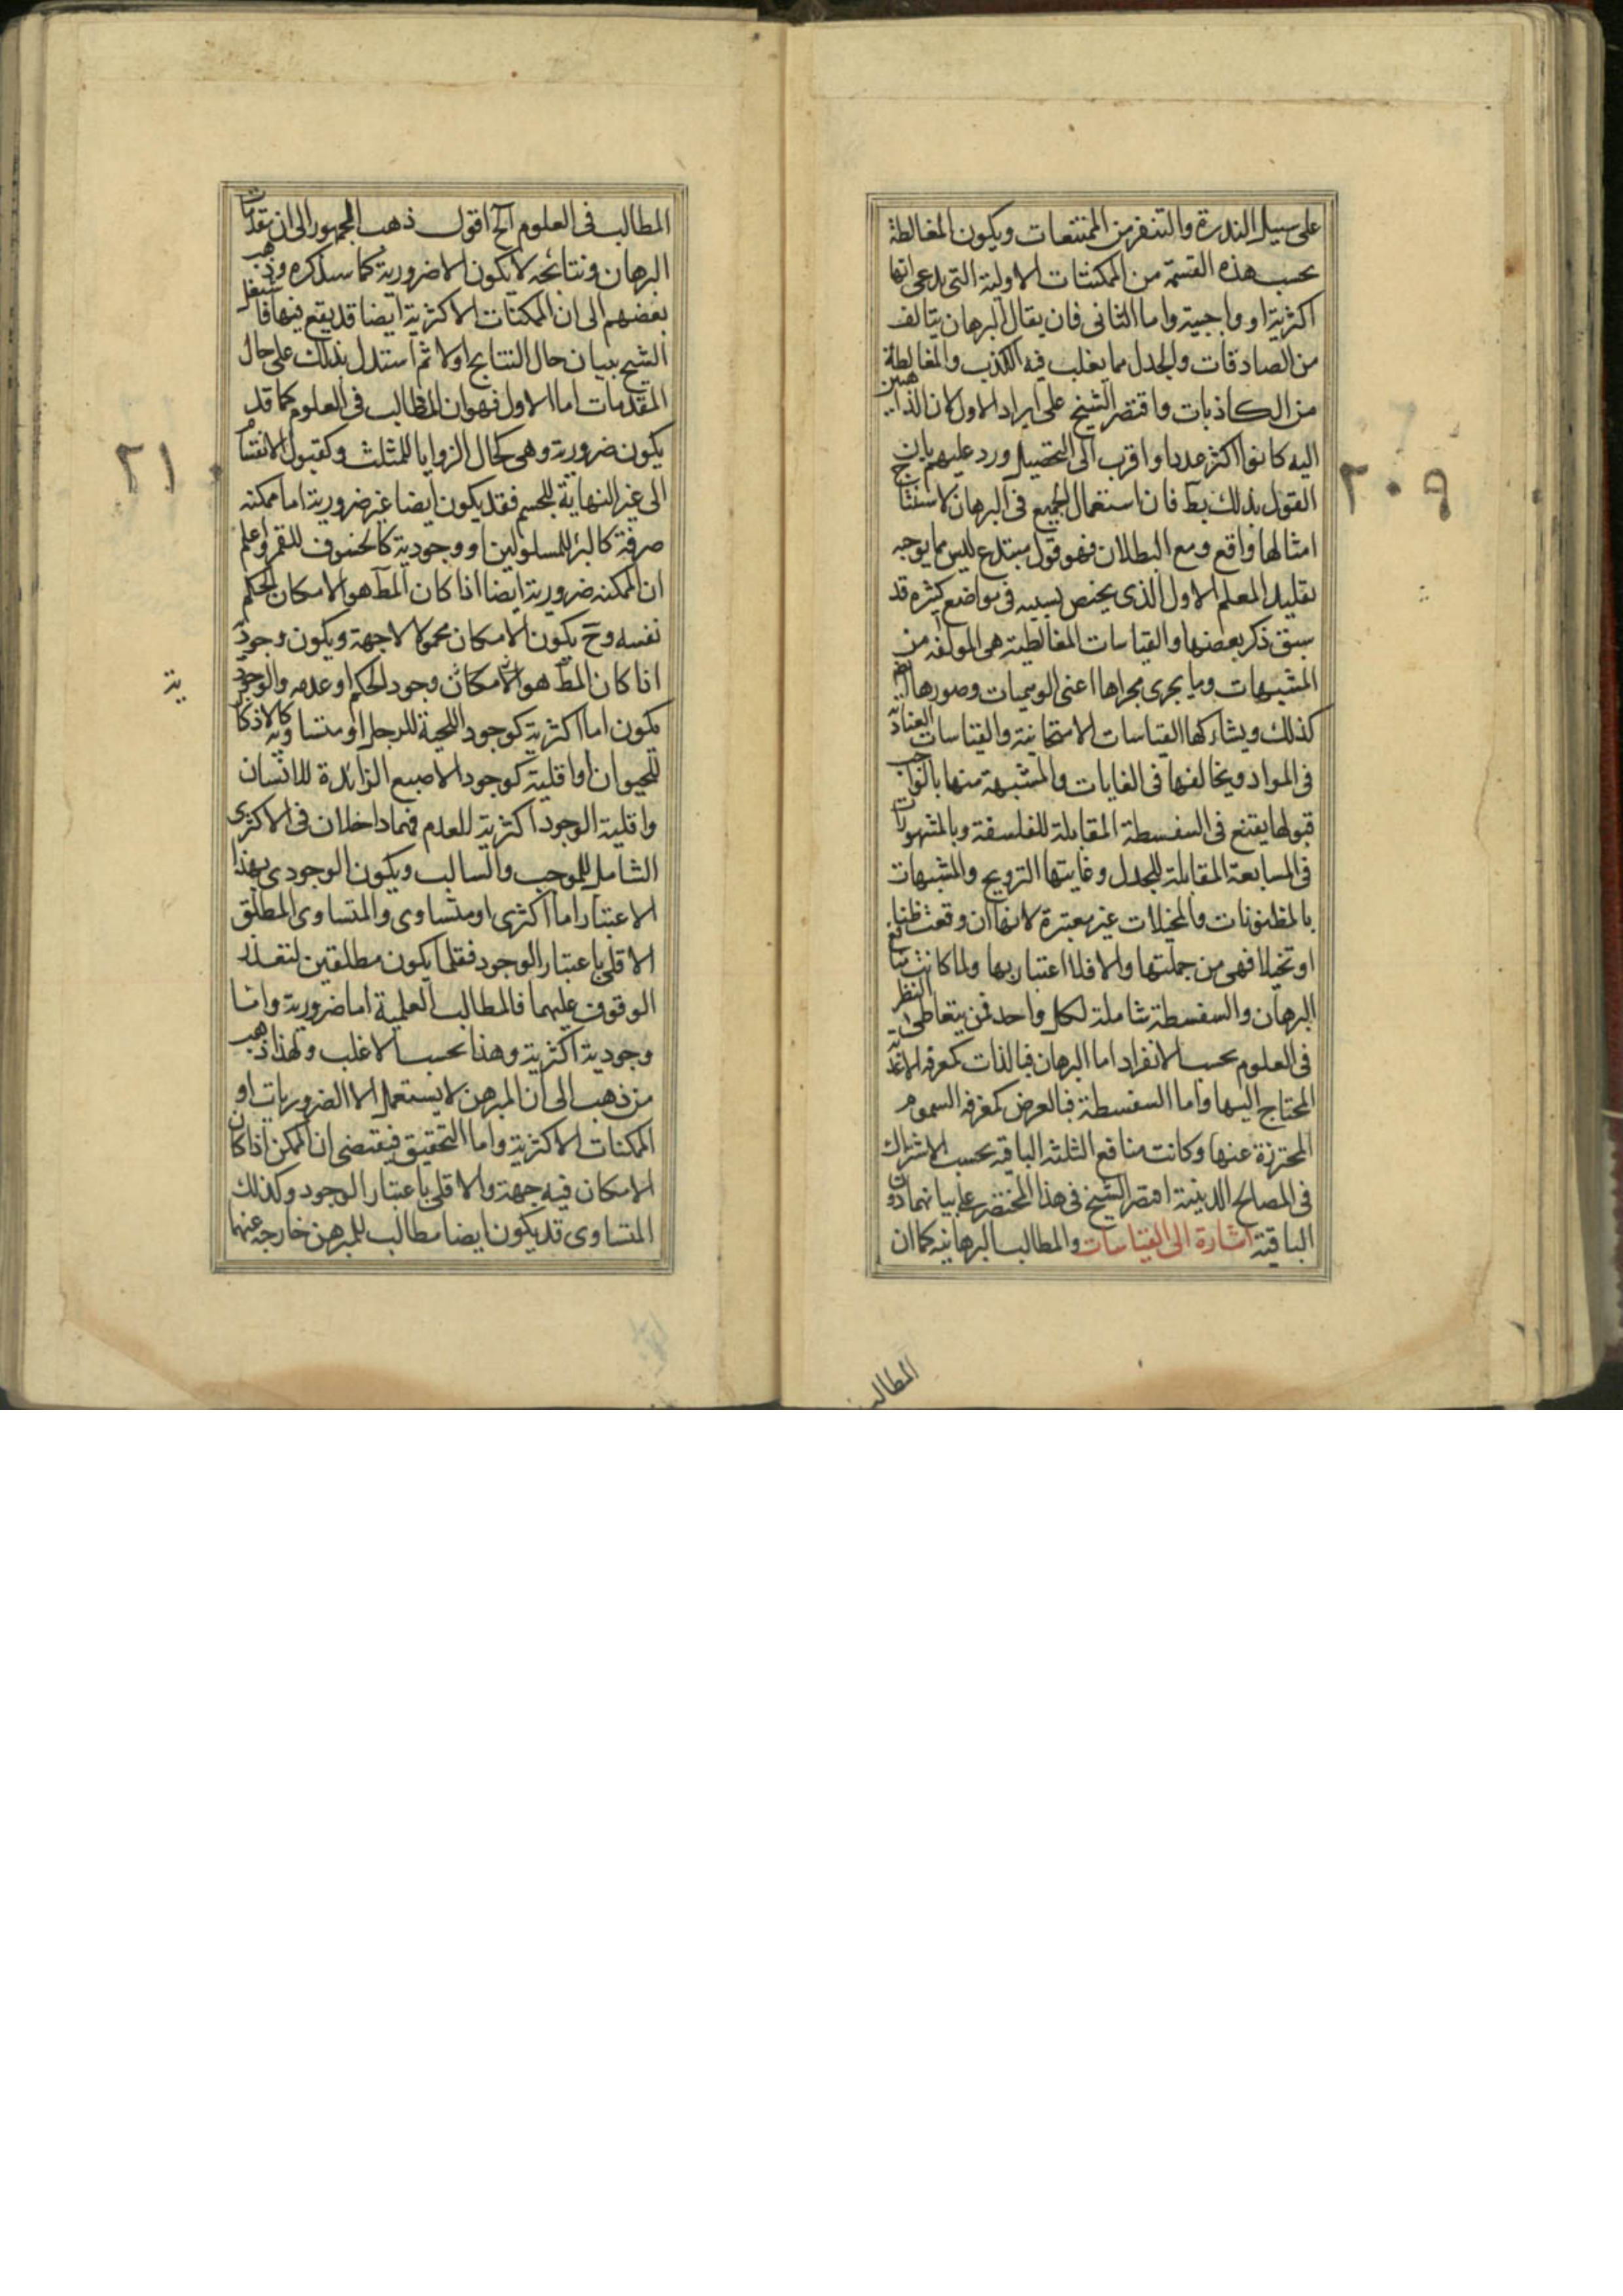 على سبيل الندرة والتنفر من الممتنعات ويكون المغالطة
بحسب هذه القسمة من الممكنات الاولية التي يدعى انها
اكثرية او واجبية واما الثاني فان يقال البرهان يتالف
من الصادقات والجدل مما يغلب فيه الكذب والمغالطة
من الكاذبات واقتصر الشيخ على ايراد الاول لان الذاهبين
اليه كانوا اكثر عددا واقرب الى التحصيل ورد عليهم بان
القول بذلك بط فان استعمال الجميع في البرهان لاستنتاج
امثالها واقع ومع البطلان فهو قول مبتدع ليس مما يوجبه
تقليد المعلم الاول الذي يختص بسببه في مواضع كثيره قد
سبق ذكر بعضها والقياسات المغالطية هي المولفه من
المشبهات وما يجرى مجراها اعني الوهميات وصورها ايضا
كذلك ويشاركها القياسات الامتحانية والقياسات العنادية
في المواد ويخالفها في الغايات والمشبهة منها بالواجب
قبولها يقع في السفسطة المقابلة للفلسفة وبالمشهورات
في المشاغبة المقابلة للجدل وغايتها الترويج والمشبهات
بالمظنونات والمخيلات غير معتبرة لانها ان وقعت ظنا
او تخيلا فهي من جملتها والا فلا اعتبار بها ولما كانت منافع
البرهان والسفسطة شاملة لكل واحد فمن يتعاطى النظر
في العلوم بحسب الانفراد اما البرهان فبالذات كمعرفه الاغذية
المحتاج اليها واما السفسطة فبالعرض كمعرفه السموم
المحترزة عنها وكانت منافع الثلثه الباقيه بحسب الاشتراك
في المصالح المدينية اقتصر الشيخ في هذا المختصر على بيانهما دون
الباقية اشارة الى القياسات والمطالب البرهانيه كما ان
المطالب
٢٠٩
المطالب في العلوم الخ اقول ذهب الجمهور الى ان مقدمات
البرهان ونتائجه لا يكون الا ضرورية كما سنذكره وذهب
بعضهم الى ان الممكنات الاكثرية ايضا قد يقع فيها فاشتغل
الشيخ ببيان حال النتايج اولا ثم استدل بذلك على حال
المقدمات اما الاول فهو ان المطالب في العلوم كما قد
يكون ضرورية وهي كحال الزوايا للمثلث وكقبول الانقسام
الى غير النهاية للجسم فقد يكون ايضا غير ضرورية اما ممكنه
صرفة كالبرء للمسلولين او وجودية كالخسوف للقمر واعلم
ان الممكنه ضرورية ايضا اذا كان المط هو الامكان الحكم
نفسه وح يكون الامكان محمولا لا جهة ويكون وجودية
اذا كان المط هو الامكان وجود الحكم او عدمه والوجودية
يكون اما اكثرية كوجود اللحية للرجل او متساوية كالاذكار
للحيوان او اقلية كوجود الاصبع الزائدة للانسان
واقلية الوجود اكثرية للعدم فهما داخلان في الاكثرى
الشامل للموجب والسالب ويكون الوجودى بهذا
الاعتبار اما اكثرى او متساوى والمتساوى المطلق
الاقلى باعتبار الوجود فقلما يكون مطلقين لتعذر
الوقوف عليهما فالمطالب العلمية اما ضرورية واما
وجودية اكثرية وهذا بحسب الاغلب ولهذا ذهب
من ذهب الى ان المبرهن لا يستعمل الا الضروريات او
الممكنات الاكثرية واما التحقيق فيقتضى ان الممكن اذا كان
الامكان فيه جهة والاقلى باعتبار الوجود وكذلك
المتساوى قد يكون ايضا مطالب للمبرهن خارجه عنهما
٢١٠
ية